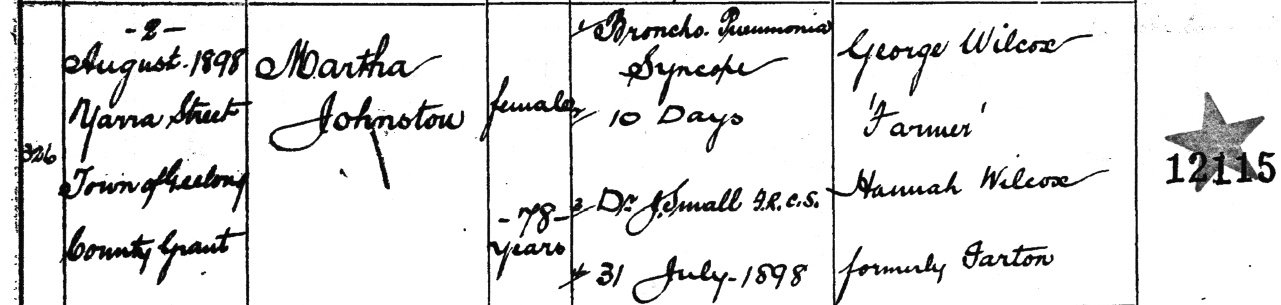 326
- 2 -
August. 1898
Yarra Street
Town of Geelong
County Grant
Martha
Johnston
female
- 78 -
years
1/ Broncho. Pneumonia
Syncope
2/ 10 Days
3/ Dr J. Small F.R.C.S.
4/ 31 July - 1898
George Wilcox
'Farmer'
Hannah Wilcox
formerly Farton
12115